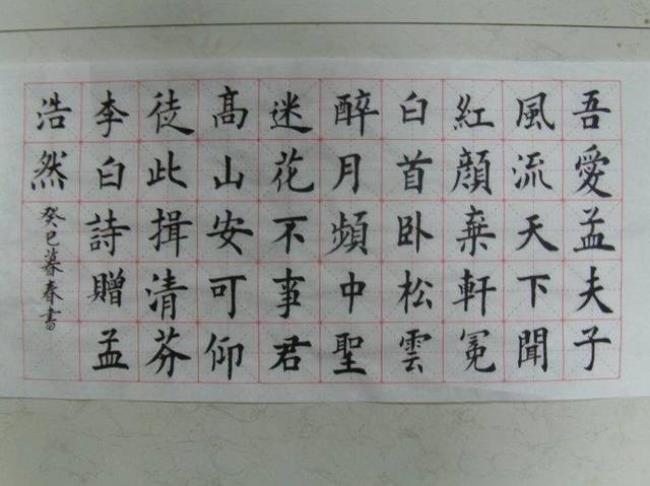 吾愛孟夫子
風流天下聞
紅顔棄軒冕
白首卧松雲
醉月頻中聖
迷花不事君
高山安可仰
徒此揖清芬
李白詩贈孟
浩然癸巳暮春書